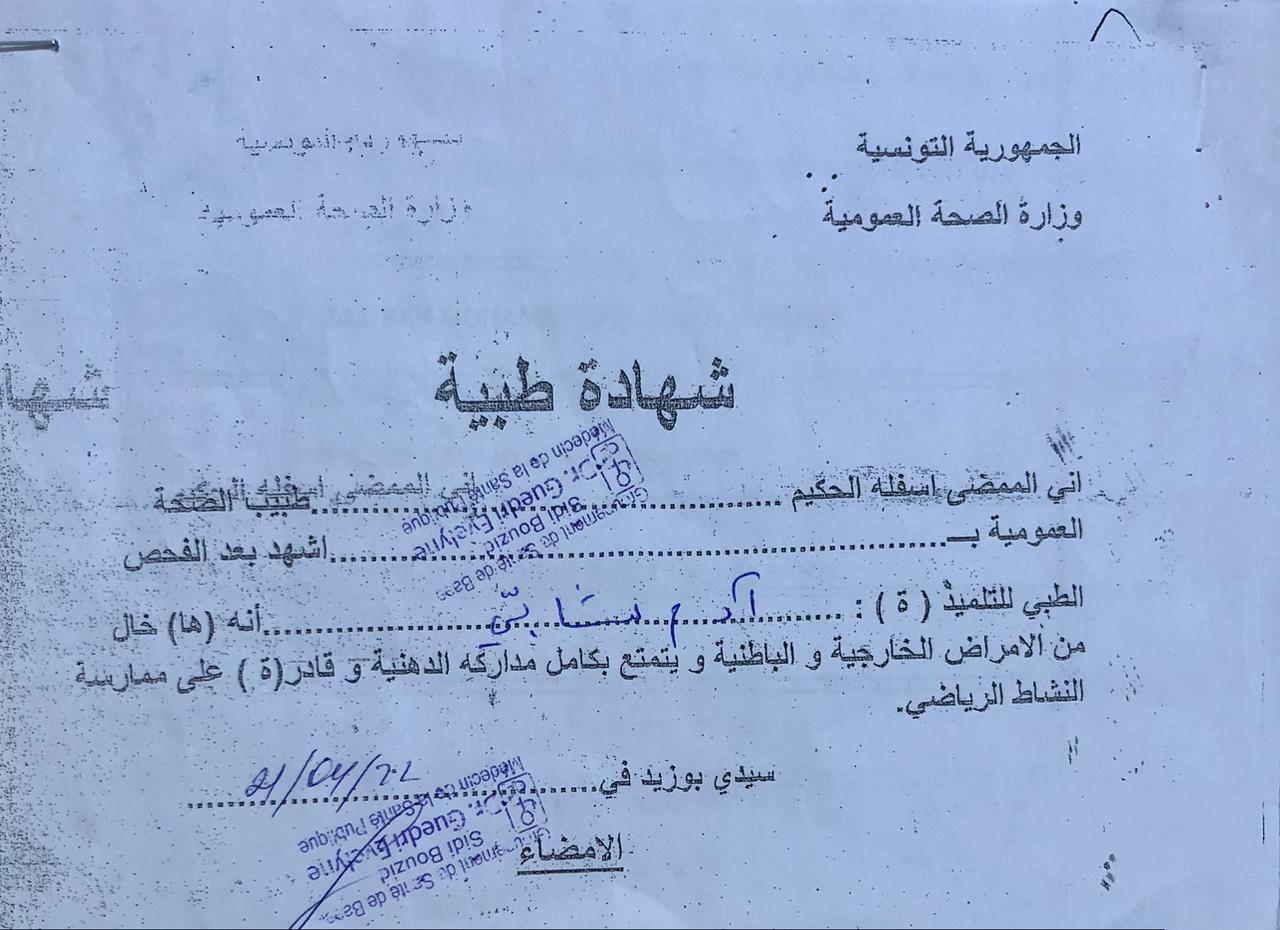 الجمهورية التونسية
وزارة الصحة العمومية
وزارة الصحة العمومية
شهادة طبية
شها
اني الممضى اسفله الحكيم ........................ طبيب الصحة
Groupement de Santé de Base
Sidi Bouzid
Dr. Guedri Evelyne
Médecin de la Santé Publique
العمومية بـ ........................ اشهد بعد الفحص
الطبي للتلميذ ( ة ) : ........ آدم شابي ........ أنه (ها) خال
من الامراض الخارجية و الباطنية و يتمتع بكامل مداركه الدهنية و قادر(ة ) على ممارسة
النشاط الرياضي.
سيدي بوزيد في ........ 21/04/22
الامضاء
Groupement de Santé de Base
Sidi Bouzid
Dr. Guedri Evelyne
Médecin de la Santé Publique